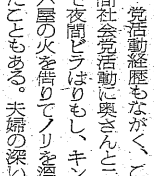 党活動経歴もながく、ご
間社会党活動に奥さんと二
で夜間ビラはりもし、キン
屋の火を借りてノリを溶
たこともある。夫婦の深い